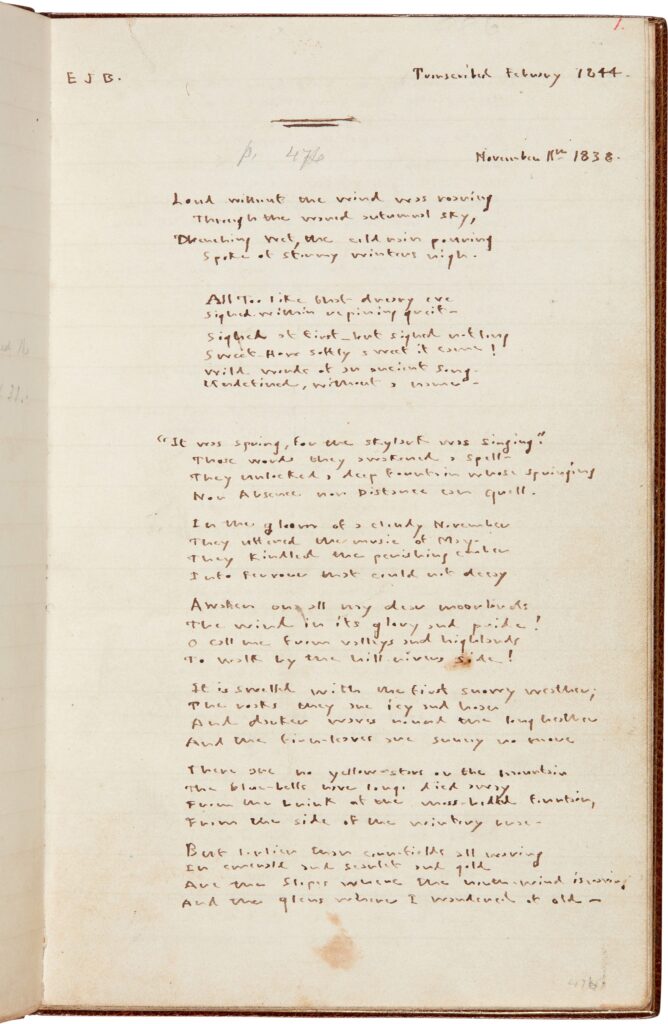 1.
E J B. Transcribed Febuary 1844.
p. 476
November 11th 1838.
Loud without the wind was roaring
Through the waned autumnal sky,
Drenching wet, the cold rain pouring
Spoke of stormy winters nigh.
All too like that dreary eve
Sighed within repining grief -
Sighed at first - but sighed not long
Sweet - How softly sweet it came!
Wild words of an ancient song -
Undefined, without a name -
"It was spring, for the skylark was singing."
Those words they awakened a spell -
They unlocked a deep fountain whose springing
Nor Absence nor Distance can quell.
In the gloom of a cloudy November
They uttered the music of May -
They kindled the perishing ember
Into fervour that could not decay
Awaken on all my dear moorlands
The wind in its glory and pride!
O call me from valleys and highlands
To walk by the hill-rivers side!
It is swelled with the first snowy weather;
The rocks they are icy and hoar
And darker waves round the long heather
And the fern-leaves are sunny no more
There are no yellow-stars on the mountain
The blue-bells have long died away
From the brink of the moss-bedded fountain,
From the side of the wintery brae -
But lovelier than corn-fields all waving
In emerald and scarlet and gold
Are the slopes where the north-wind is raving
And the glens where I wandered of old -